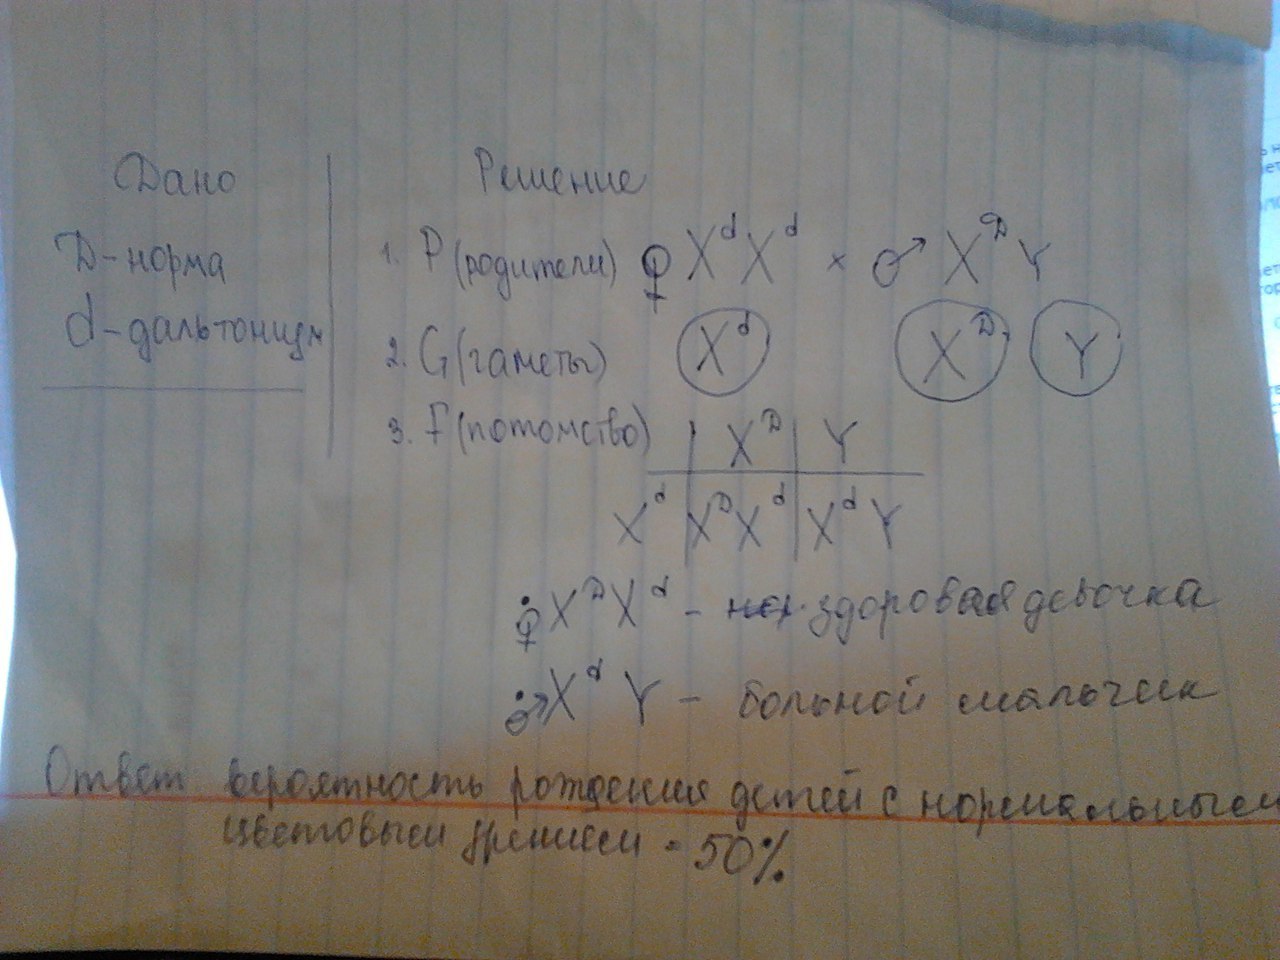 Дано
Решение
D - норма
d - дальтонизм
1. P (родители) ♀ XᵈXᵈ × ♂ XᴰY
2. G (гаметы) Xᵈ Xᴰ Y
3. F (потомство)
Xᴰ Y
Xᵈ XᴰXᵈ XᵈY
♀ XᴰXᵈ - здоровая девочка
♂ XᵈY - больной мальчик
Ответ вероятность рождения детей с нормальным
цветовым зрением - 50%